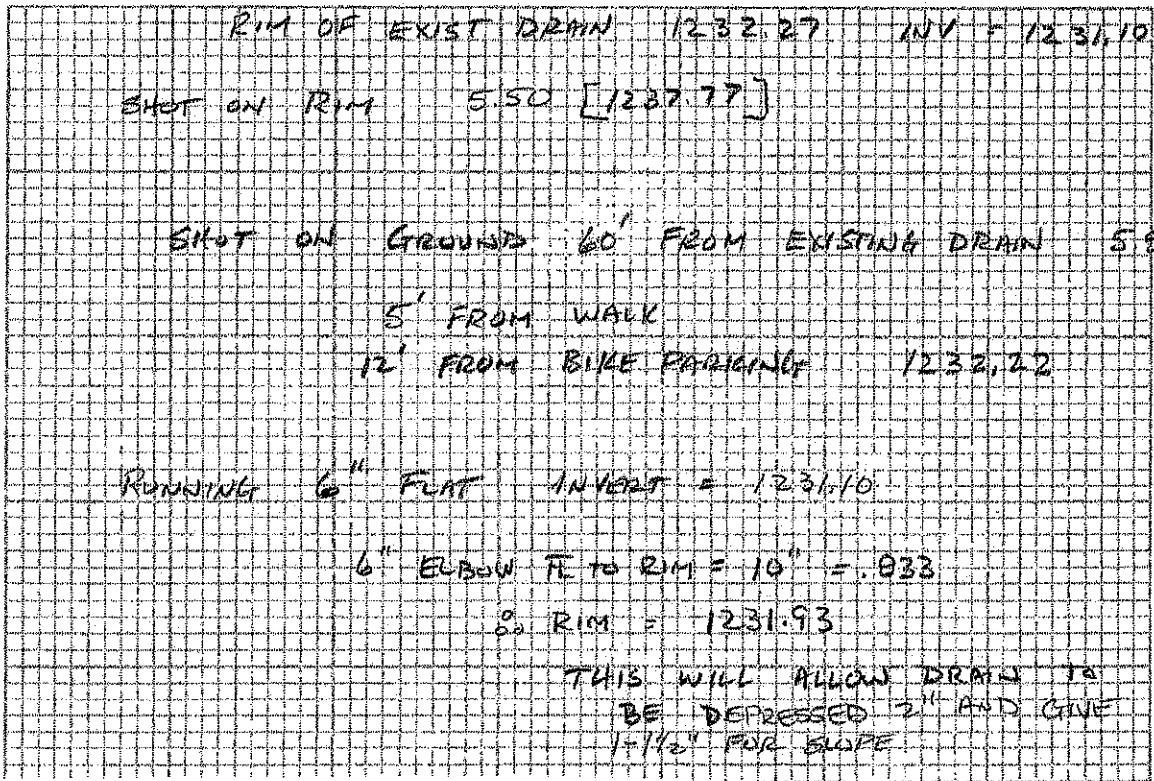 RIM OF EXIST DRAIN 1232.27 INV = 1231.10
SHOT ON RIM 5.50 [1237.77]
SHOT ON GROUND 60' FROM EXISTING DRAIN
5' FROM WALK
12' FROM BIKE PARKING 1232.22
RUNNING 6" FLAT INVERT = 1231.10
6" ELBOW FL TO RIM = 10" = .833
∴ RIM = 1231.93
THIS WILL ALLOW DRAIN TO
BE DEPRESSED 2" AND GIVE
1-1½" FOR SLOPE